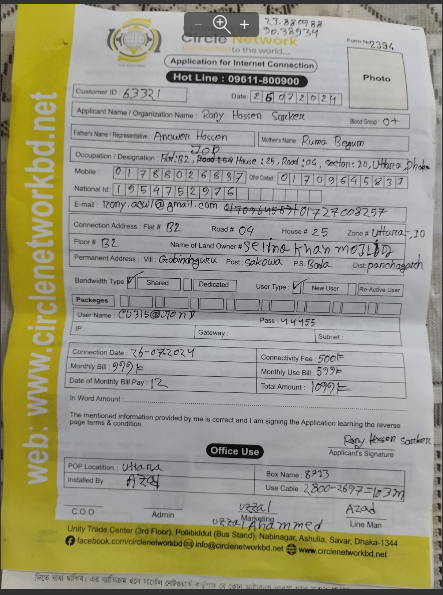 23.880988
90.38934
Circle Network
Connected to the world...
Form No 2394
Application for Internet Connection
Hot Line : 09611-800900
Photo
Customer ID 63321
Date: 26072024
Applicant Name / Organization Name : Rony Hossen Sarker
Blood Group O+
Father's Name / Representative : Anower Hossen
Mother's Name Ruma Begum
JOB
Occupation / Designation Flat: B2, House : 25, Road : 04, Sector : 20, Uttara Dhaka
Mobile
Other Contact
National Id: 1954752976
E-mail : 01727008257
Connection Address : Flat # B2 Road # 04 House # 25 Zone # Uttara-10
Floor # B2 Name of Land Owner # Selina Khan
Permanent Address : Vill: Post: Sakowa P.S. Boda Dist: panchagarh
Bandwidth Type Shared Dedicated User Type : New User Re-Active User
Packages
User Name : Pass : 44455
IP : Gateway : Subnet :
Connection Date : 26-07-2024 Connectivity Fee : 500/=
Monthly Bill : 999/= Monthly Use Bill : 599/=
Date of Monthly Bill Pay : 12 Total Amount : 1099/=
In Word Amount
The mentioned information provided by me is correct and I am signing the Application learning the reverse
page terms & condition.
Rony Hossen Sarker
Applicant's Signature
Office Use
POP Location : Uttara Box Name : 8713
Installed By Azad Use Cable 2800-2697=103m
C.O.O Admin Uzzal Marketing Azad Line Man
Uzzal Ahammed
Unity Trade Center (3rd Floor), Polibiddut (Bus Stand), Nabinagar, Ashulia, Savar, Dhaka-1344
facebook.com/circlenetworkbd info@circlenetworkbd.net www.circlenetworkbd.net
web: www.circlenetworkbd.net